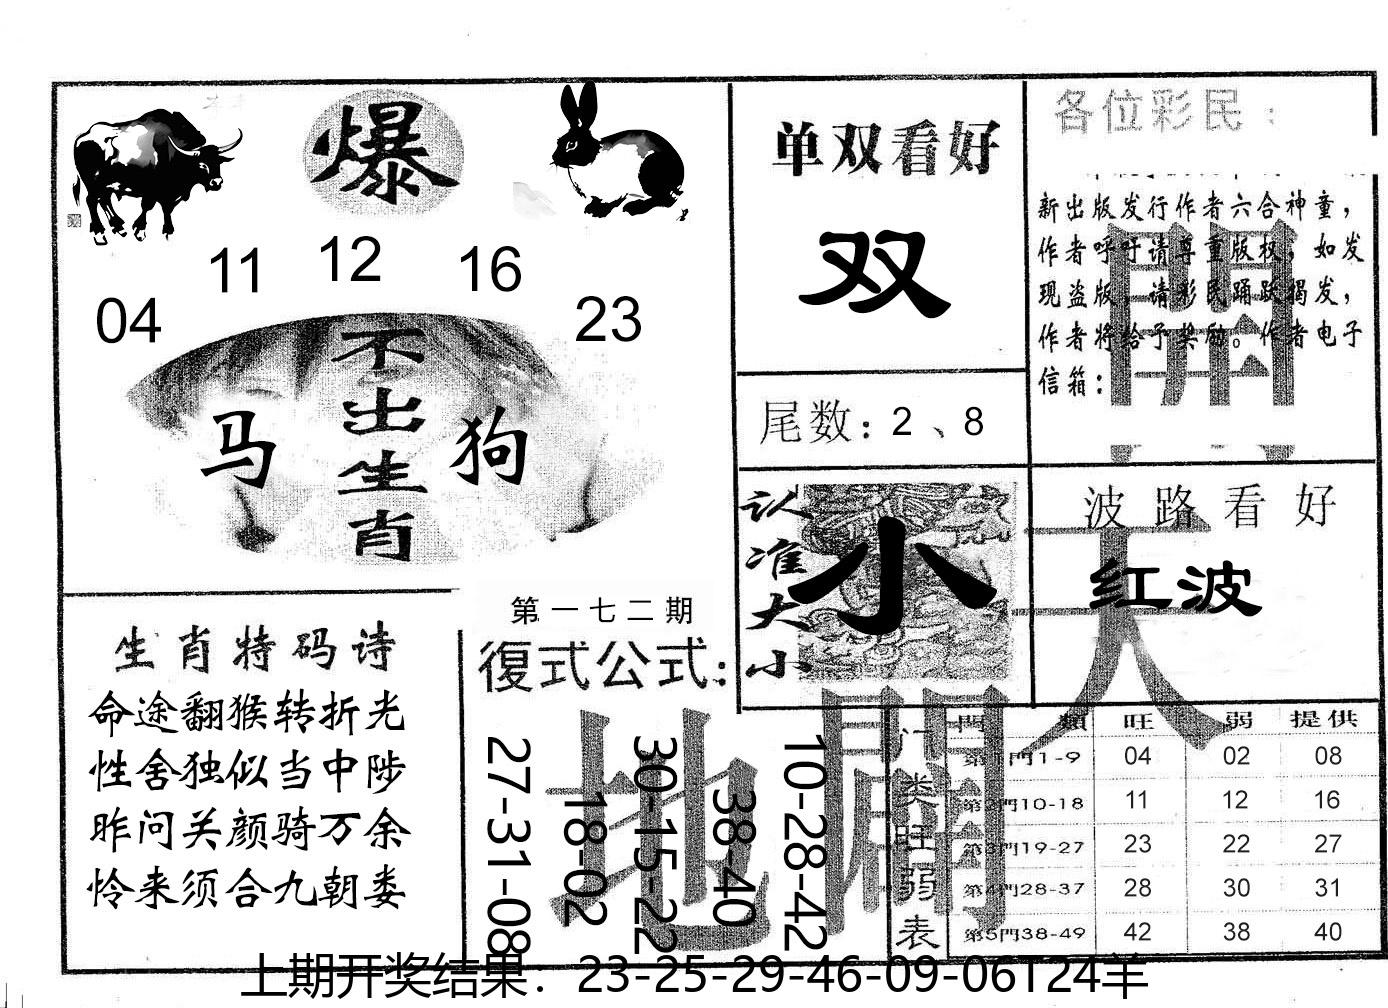 爆
11 12 16
04 23
不出生肖
马 狗
单双看好
双
尾数：2、8
各位彩民：
新出版发行作者六合神童，
作者呼吁请尊重版权，如发
现盗版，请彩民踊跃揭发，
作者将给予奖励。作者电子
信箱：
認准大小
小
波路看好
红波
天
開
生肖特码诗
命途翻猴转折光
性舍独似当中陟
昨问关颜骑万余
怜来须合九朝娄
第一七二期
復式公式：
27-31-08
18-02
30-15-22
38-40
10-28-42
地
門
门类旺弱表
門類 旺 弱 提供
第1門1-9 04 02 08
第2門10-18 11 12 16
第3門19-27 23 22 27
第4門28-37 28 30 31
第5門38-49 42 38 40
上期开奖结果：23-25-29-46-09-06T24羊